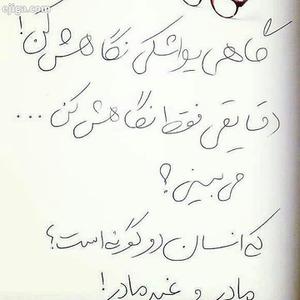 ejiga.com
گاهی یواشکی نگاهش کن!
دقایقی فقط نگاهش کن ...
می بینی؟
که انسان دو گونه است؛
مادر و غیر مادر!